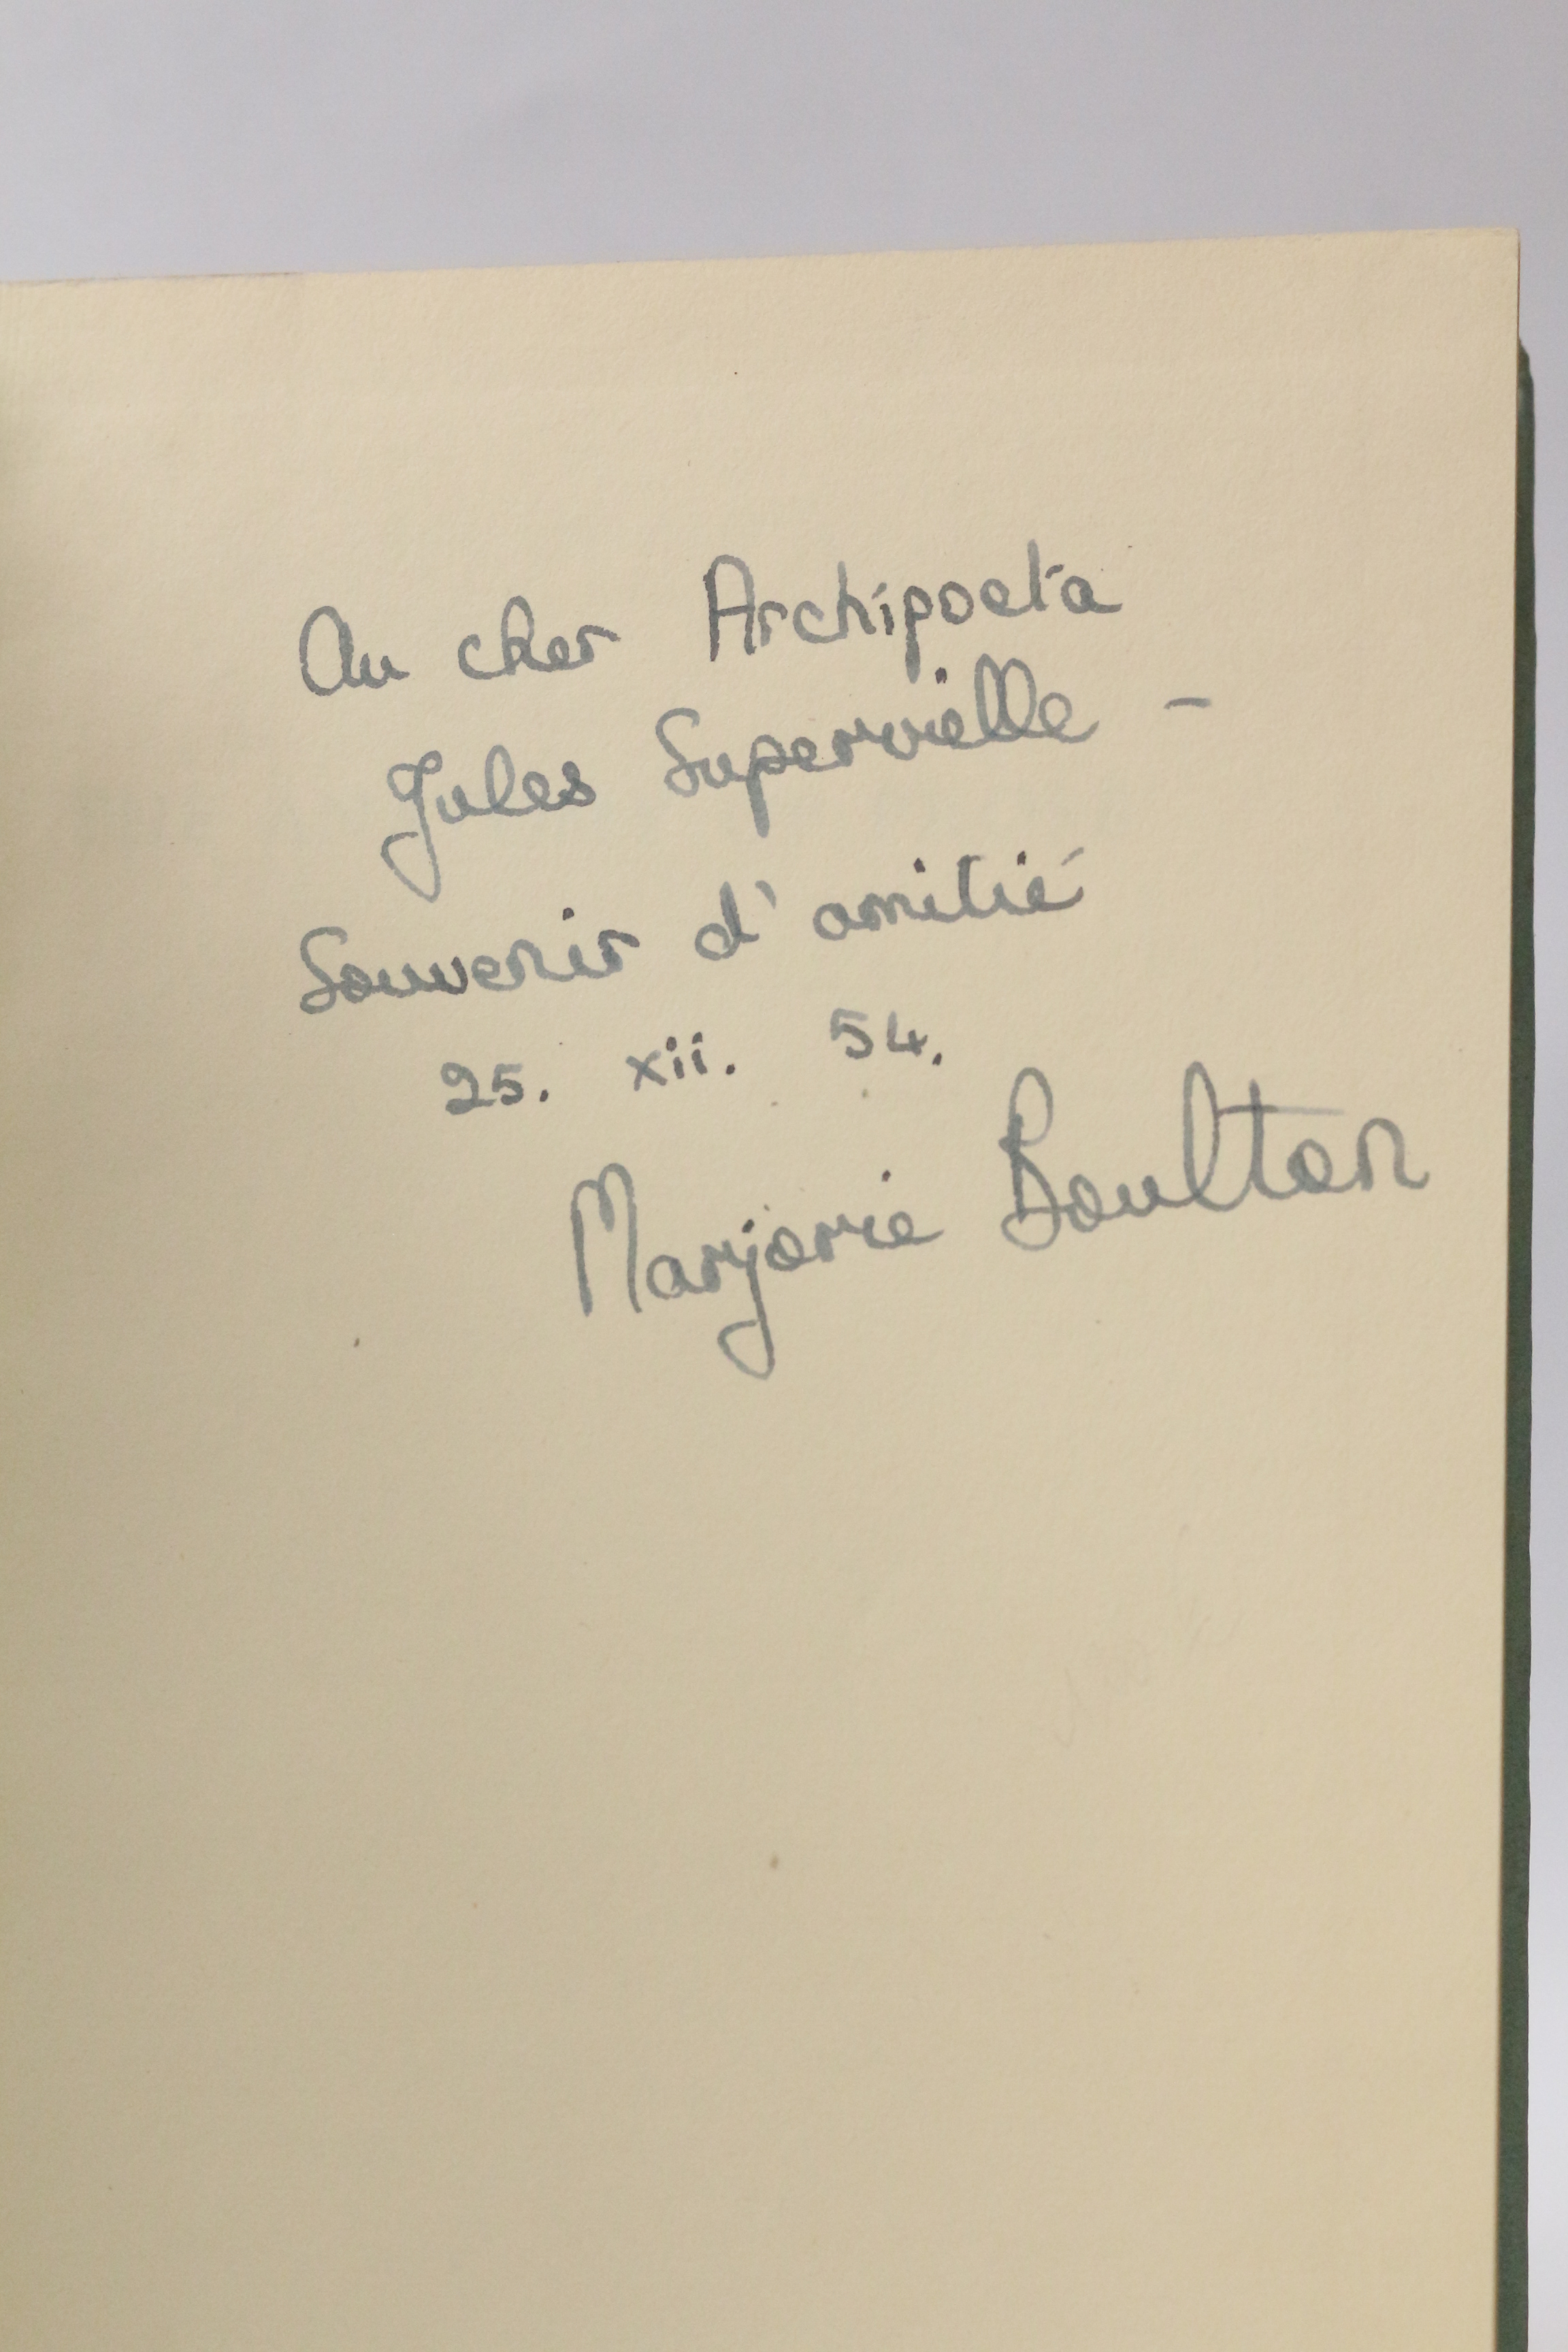 Au cher Archipoeta
Jules Supervielle –
Souvenir d'amitié
25. xii. 54.
Marjorie Boulton